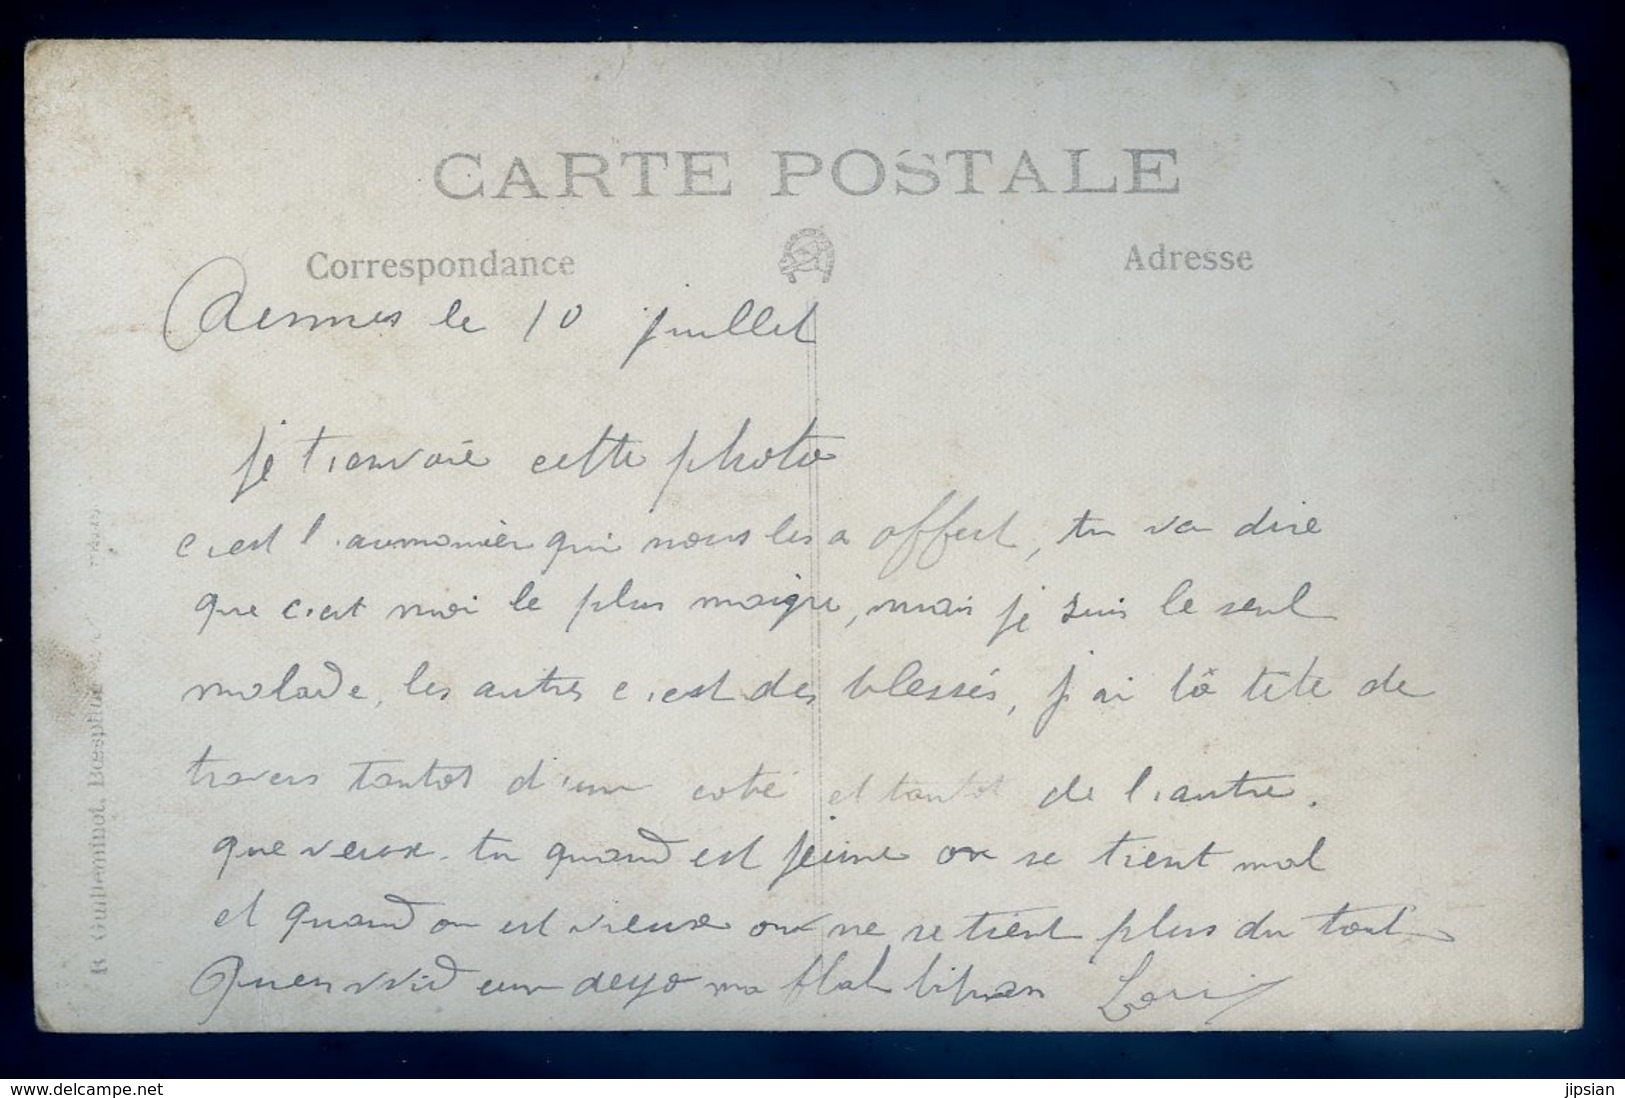 CARTE POSTALE
Correspondance
Adresse
Rennes le 10 juillet
je t'envoie cette photo
c'est l'aumonier qui nous les a offert, tu va dire
que c'est moi le plus maigre, mais je suis le seul
malade, les autres c'est des blessés, j'ai la tete de
travers tantot d'un coté et tantot de l'autre.
que veux-tu quand est jeune on se tient mal
et quand on est vieux on ne se tient plus du tout
deyo ma
R. Guilleminot, Bœspflug
www.delcampe.net
jipsian